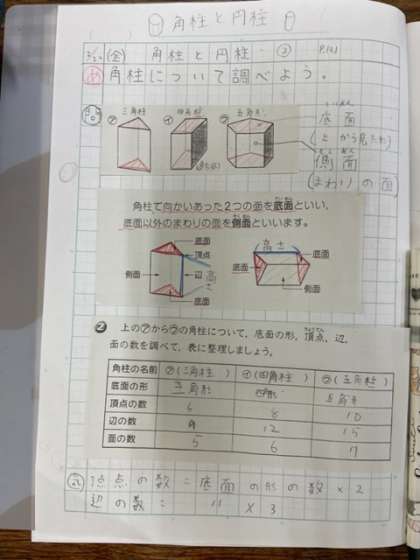 角柱と円柱
(金) 角柱と円柱 ②
め 角柱について調べよう。
㋐三角柱 ㋑四角柱 ㋒五角柱
底面
(上から見た
側面
(まわりの面
角柱で向かいあった2つの面を底面といい、
底面以外のまわりの面を側面といいます。
底面
頂点
側面 辺 高さ
底面
高さ 底面
底面
側面
2 上の㋐から㋒の角柱について、底面の形、頂点、辺、
面の数を調べて、表に整理しましょう。
角柱の名前 ㋐(三角柱) ㋑(四角柱) ㋒(五角柱)
底面の形 三角形 四角形 五角形
頂点の数 6 8 10
辺の数 9 12 15
面の数 5 6 7
頂点の数=底面の形の数×2
辺の数= 〃 ×3